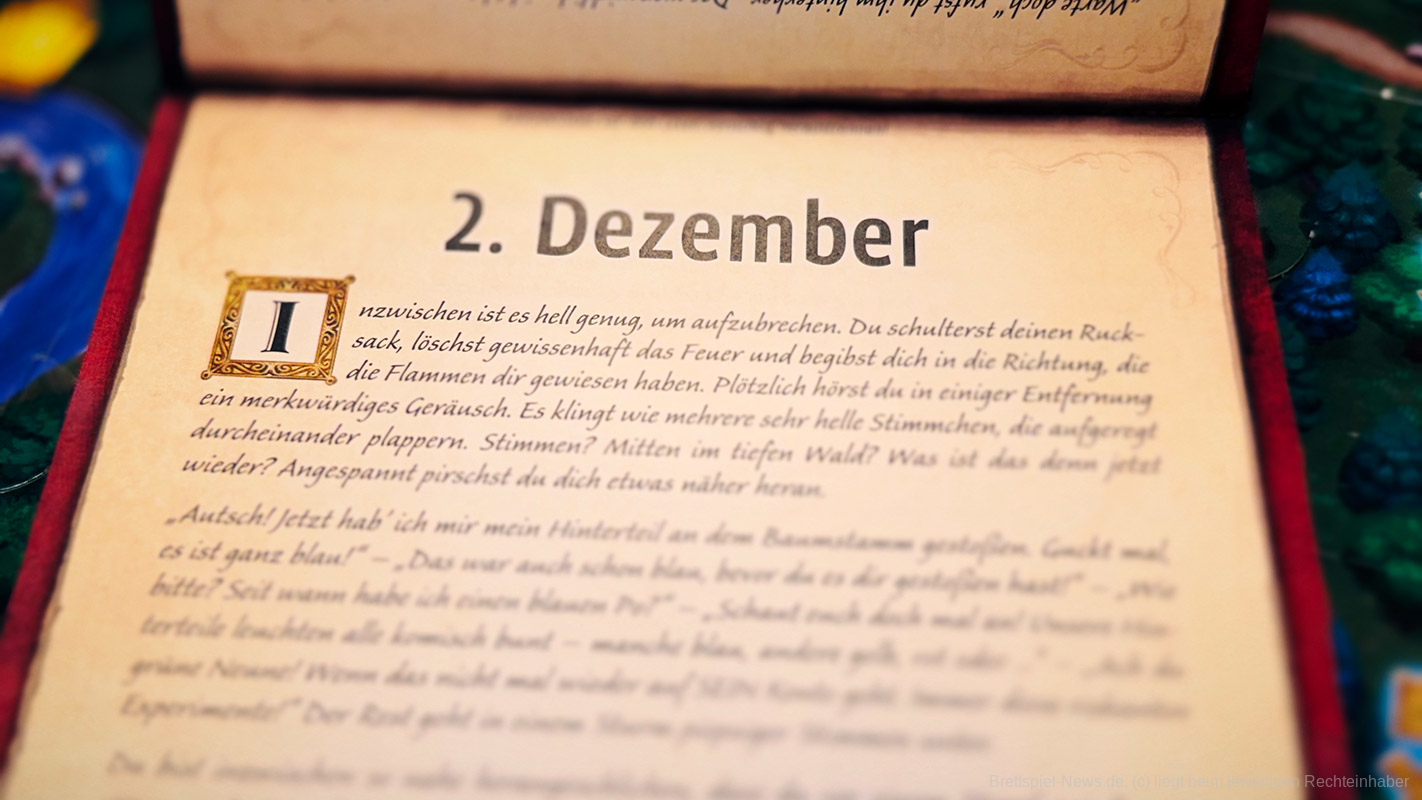 „Warte doch", rufst du ihm hinterher.
2. Dezember
Inzwischen ist es hell genug, um aufzubrechen. Du schulterst deinen Ruck-
sack, löschst gewissenhaft das Feuer und begibst dich in die Richtung, die
die Flammen dir gewiesen haben. Plötzlich hörst du in einiger Entfernung
ein merkwürdiges Geräusch. Es klingt wie mehrere sehr helle Stimmchen, die aufgeregt
durcheinander plappern. Stimmen? Mitten im tiefen Wald? Was ist das denn jetzt
wieder? Angespannt pirschst du dich etwas näher heran.
„Autsch! Jetzt hab' ich mir mein Hinterteil an dem Baumstamm gestoßen. Guckt mal,
es ist ganz blau!" – „Das war auch schon blau, bevor du es dir gestoßen hast!" – „Wie
bitte? Seit wann habe ich einen blauen Po?" – „Schaut euch doch mal an! Unsere Hin-
terteile leuchten alle komisch bunt – manche blau, andere gelb, rot oder ..." – „Ach du
grüne Neune! Wenn das nicht mal wieder auf SEIN Konto geht. Immer diese
Experimente!" Der Rest geht in einem Sturm piepsiger Stimmen unter.
Du bist inzwischen so nahe
Brettspiel-News.de, (c) liegt beim jeweiligen Rechteinhaber